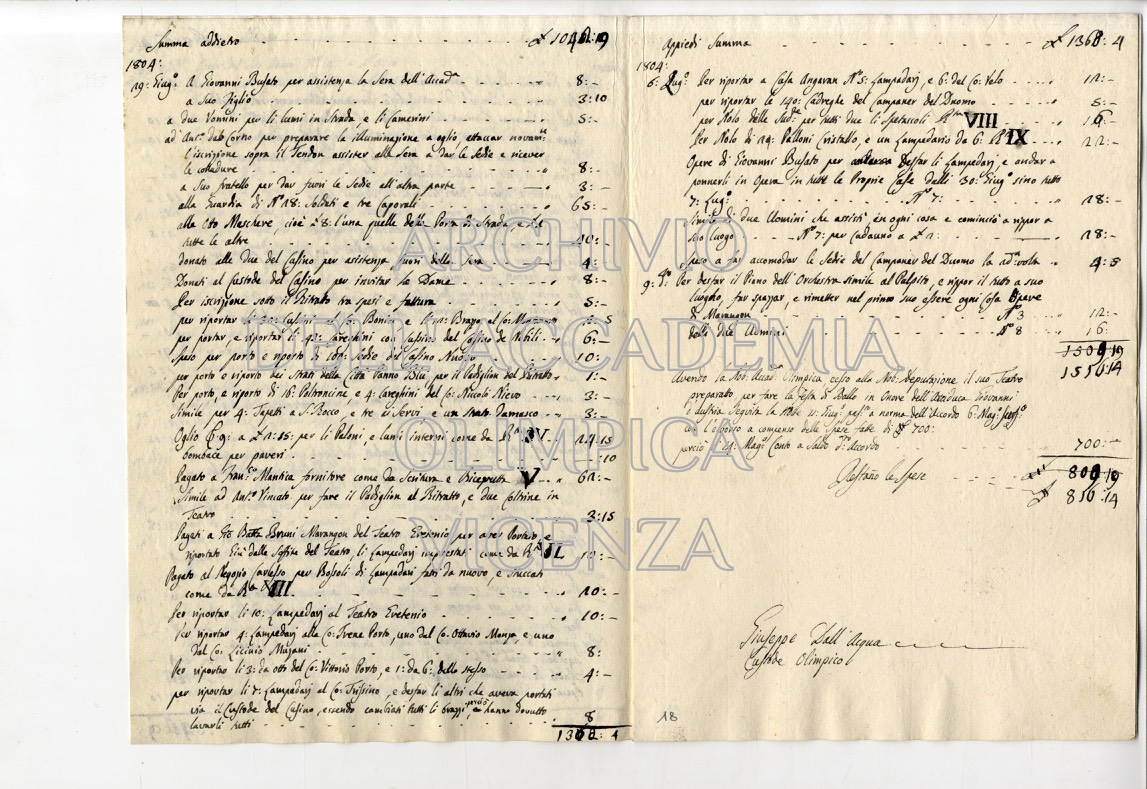 Summa addietro - - - £ 1042:19
1804:
19: Giug.º A Giovanni Busato per assistenza la Sera dell'Accad.ª - - 8:-
a Suo Figlio - - 3:10
a due Uomini per li lumi in Strada, e li Camerini - - 5:-
ad Ant.º dal Corno per preparare la illuminazione a oglio, attaccar novam.te
l'iscrizione sopra il Tendon assister alla Sera a dar le Sedie e ricever
le - - 8:-
a Suo fratello per dar fuori le Sedie all'altra parte - - 3:-
alla Guardia di Nº 18: Soldati e tre Caporali - - 65:-
alle Otto Maschere cioè a 8: l'una quelle della Porta di Strada, e
tutte le altre - -
donato alle due del Casino per asistenza fuori della Sera - - 4:-
Donati al Custode del Casino per invitar le Dame - - 8:-
Per iscrizione sotto il Ritrato tra spesi e fattura - - 5:-
per riportar
per portar, e riportar li 42: Careghini con Cussini del Casino de Nobili - - 6:-
speso per porto e riporto di Sedie del Casino Nuovo - - 10:
per porto e riporto dei Strati della Città Panno Blù per il Padiglion del Ritratto - - 1:-
Per porto, e riporto di 16: Poltroncine e 4: Careghini del Co: Nicolò Nievo - - 3:-
Simile per 4: Tapeti a S. Rocco, e tre ai Servi e un Strato Damasco - - 3:-
Oglio 9: a £ 2:15: per li Paloni, e lumi interni come da R.ta IV - - 24:15
bombace per paveri - - :10
Pagato a Fran.co Mantica fornitore come da Scritura e Riceputa V - - 62:-
Simile ad Ant.º Vincato per fare il Padiglion al Ritratto, e due Coltrine in
Teatro - - 3:15
Pagati a Gio Batta Bruni Marangon del Teatro Eretenio per aver Portato, e
riportato Giù dalla Soffita del Teatro, li Lampedarj imprestati come da R.ta - - 10:-
Pagato al Negozio Carlesso per Bossoli di Lampadari fatti da nuovo, e Stuccati
come da R.ta VII - - 20:-
Per riportar li 10: Lampedarj al Teatro Eretenio - - 10:-
Per riportar 4: Lampedarj alla Co: Irene Porto, uno dal Co: Ottavio Monza, e uno
dal Co: Licinio Muzani - - 8:
Per riportar li 3: da otto del Co: Vittorio Porto, e 1: da 6: dello stesso - - 4:-
per riportar li 7: Lampedarj al Co: Trissino, e desfar li altri che aveva portati
via il Custode del Casino, essendo cambiati tutti li brazzi, perciò hanno dovutto
lavarli tutti - - 8
1368: 4
Appiedi Summa - - - £ 1368: 4
1804:
6: Lug.º Per riportar a Casa Angaran Nº 5: Lampadarj, e 6: dal Co: Velo - - 12:-
per riportar le 140: Cadreghe del Campaner del Duomo - - 5:-
per Nolo delle Sud.e per tutti due li Spetacoli R.ta VIII - - 16:-
Per Nolo di 24: Palloni Cristallo, e un Lampedario da 6: R.ta IX - - 22:-
Opere di Giovanni Busato per desfar li Lampedarj, e andar a
ponnerli in Opera in tutte le Proprie Case dalli 30: Giug.º sino tutto
7: Lug.º - - Nº 7: - - 28:-
Simile di due Uomini che assistì in ogni cosa e cominciò a ripper a
Suo luogo - - Nº 7: per Cadauno a £ 2: - - 28:-
speso a far accomodar le Sedie del Campaner del Duomo la ad.ª volta - - 4:5
9: d.º Per desfar il Piano dell'Orchestra Simile al Palpito, e ripper il tutto a suo
luogho, far spazzar, e rimetter nel primo suo essere ogni Cosa Opere
di Marangon - - Nº 3 - - 12:-
delli due Uomini - - Nº 8 - - 16:
1509:19
1510:14
Avendo la Nob: Accad.ª Olimpica cesso alla Nob: Deputazione il suo Teatro
preparatto per fare la festa di Ballo in Onore dell'Arciduca Giovanni
d'Austria Seguita la Notte
l'esborso a compenso delle Spese fatte di £ 700:
perciò Conto a Saldo Accordo - - 700:-
Restano le Spese - - £ 809:19
£ 810:14
Giuseppe Dall'Acqua
Custode Olimpico
18
ARCHIVIO
DELL'ACCADEMIA
OLIMPICA
VICENZA